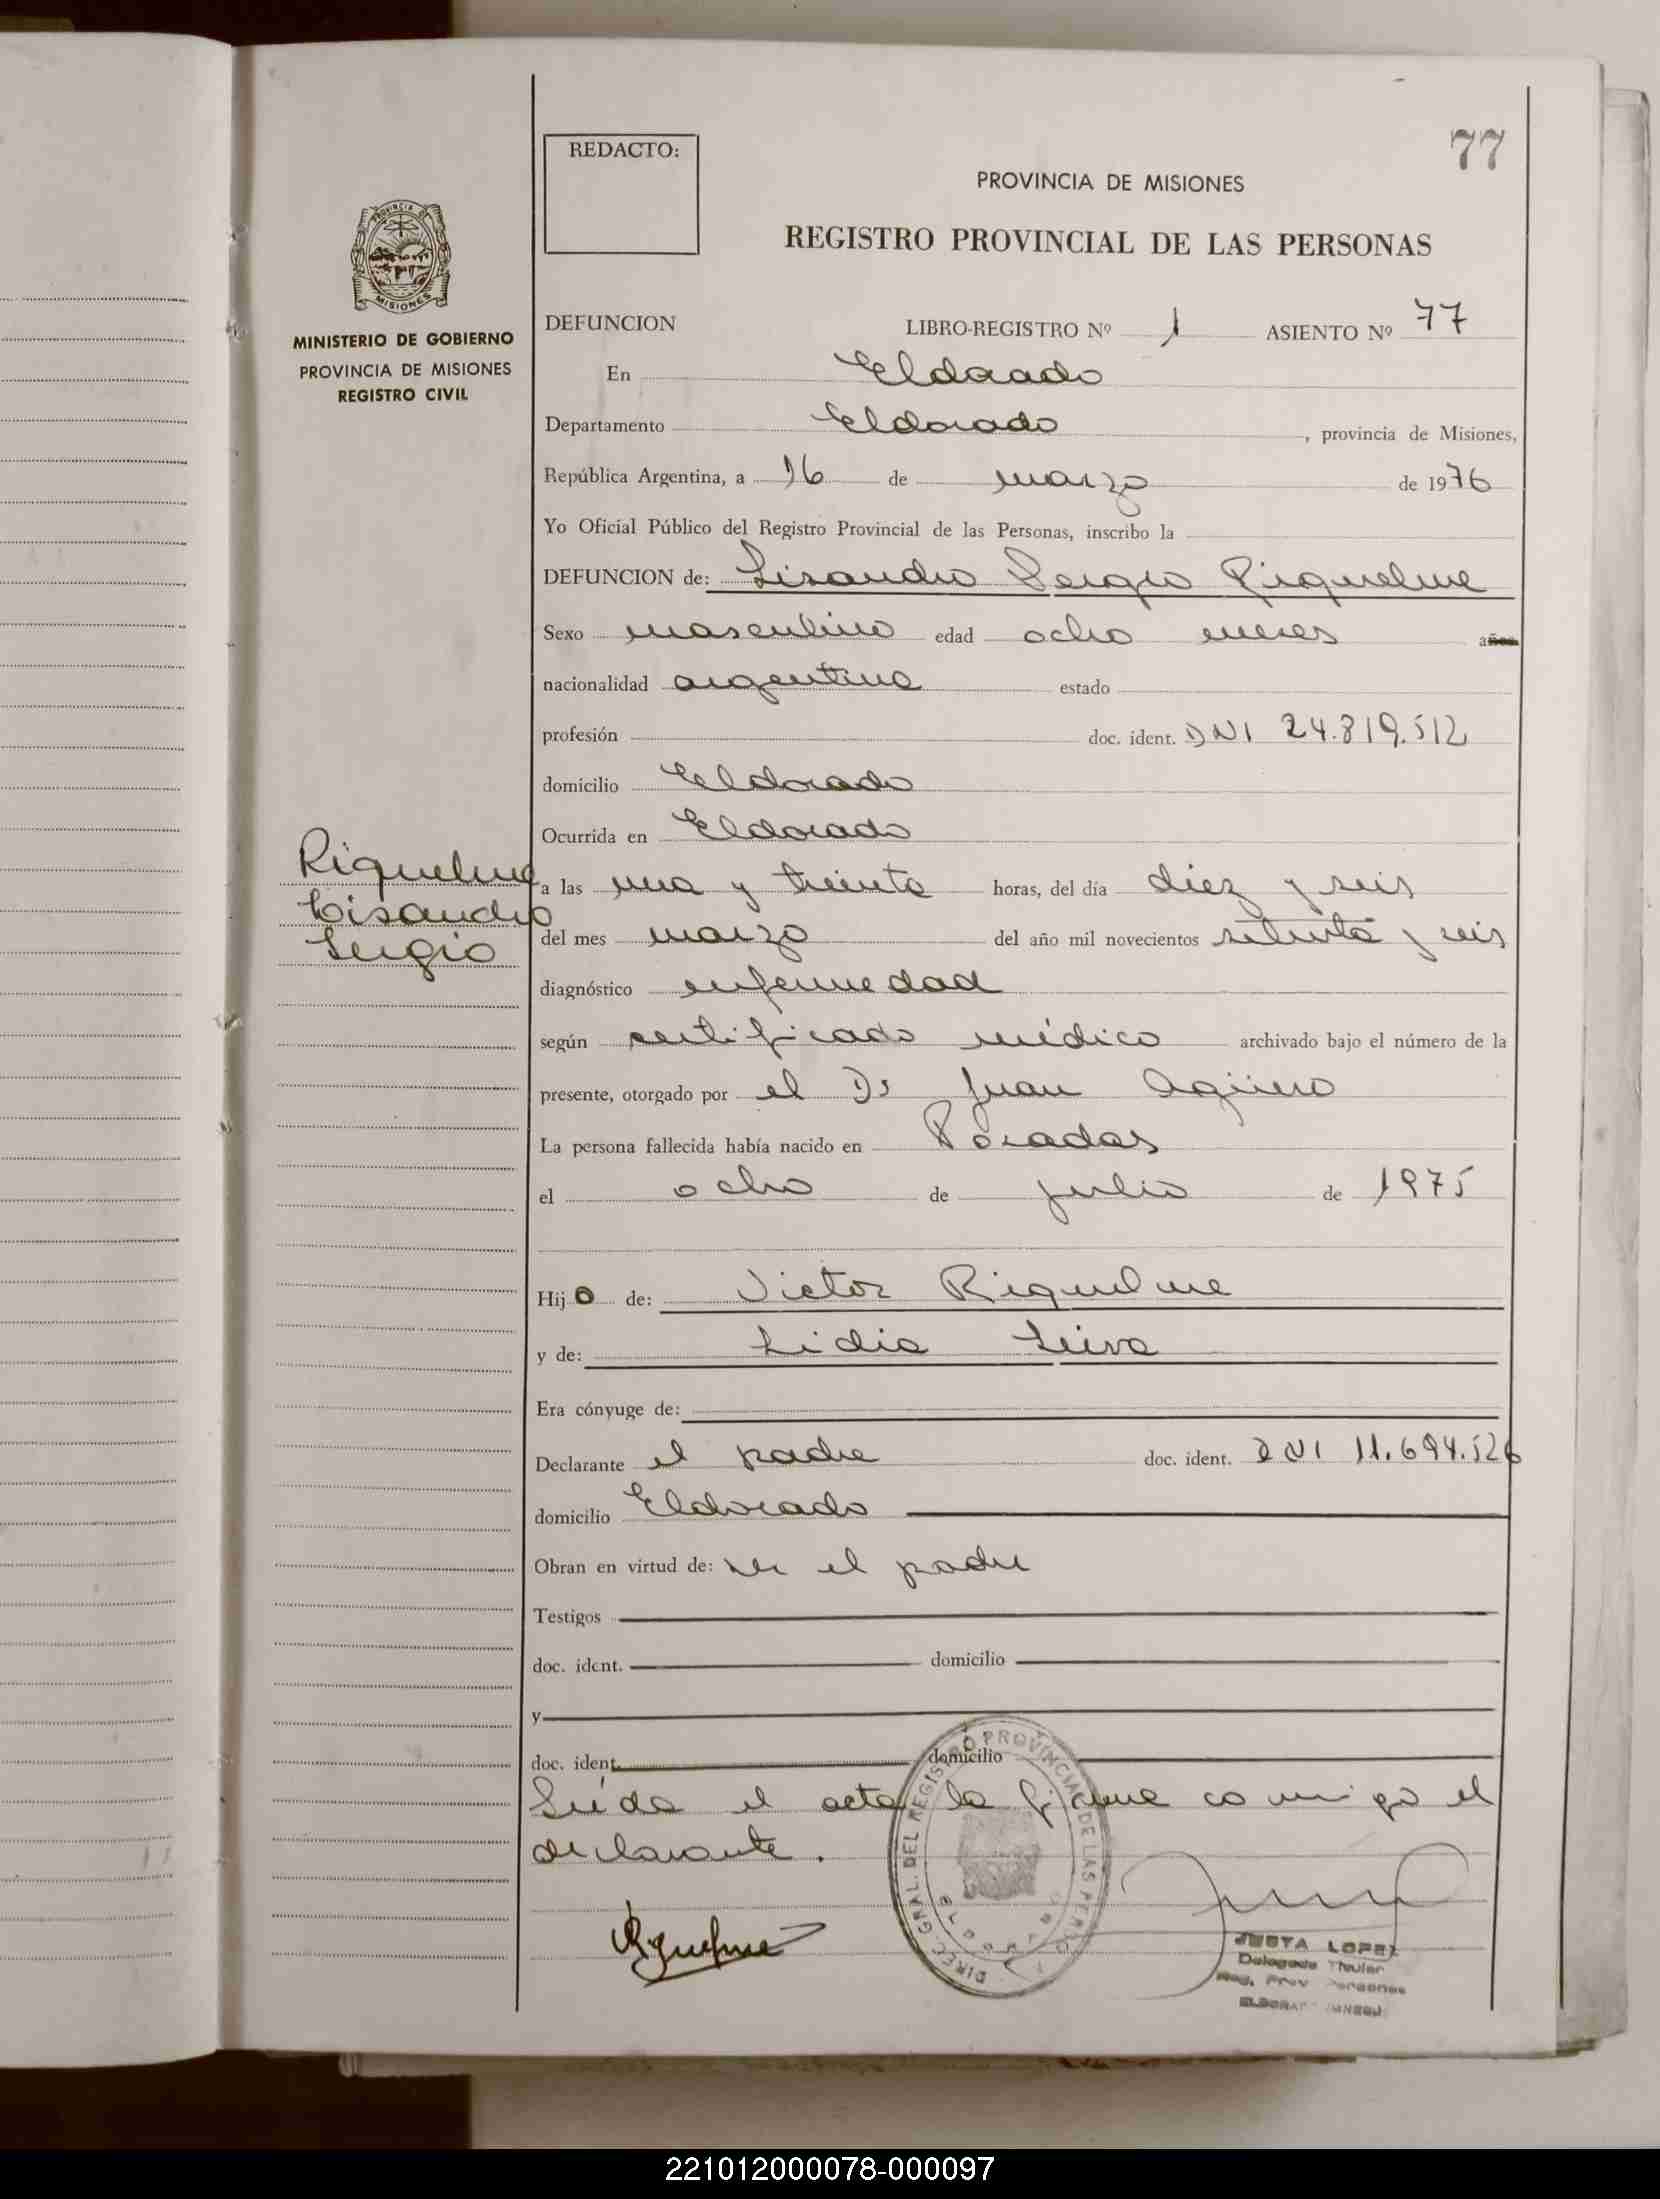 77
REDACTO:
PROVINCIA DE MISIONES
REGISTRO PROVINCIAL DE LAS PERSONAS
PROVINCIA DE
MISIONES
MINISTERIO DE GOBIERNO
PROVINCIA DE MISIONES
REGISTRO CIVIL
DEFUNCION LIBRO-REGISTRO Nº 1 ASIENTO Nº 77
En Eldorado
Departamento Eldorado, provincia de Misiones,
República Argentina, a 16 de marzo de 1976
Yo Oficial Público del Registro Provincial de las Personas, inscribo la
DEFUNCION de: Lisandro Sergio Riquelme
Sexo masculino edad ocho meses años
nacionalidad argentina estado
profesión doc. ident. DNI 24.819.512
domicilio Eldorado
Ocurrida en Eldorado
Riquelme
Lisandro
Sergio
a las una y treinta horas, del día diez y seis
del mes marzo del año mil novecientos setenta y seis
diagnóstico enfermedad
según certificado médico archivado bajo el número de la
presente, otorgado por el Dr Juan Agüero
La persona fallecida había nacido en Posadas
el ocho de julio de 1975
Hijo de: Victor Riquelme
y de: Lidia Leiva
Era cónyuge de:
Declarante el padre doc. ident. DNI 11.694.526
domicilio Eldorado
Obran en virtud de: ser el padre
Testigos
doc. ident. domicilio
y
doc. ident. domicilio
Leída el acta la firma conmigo el
declarante.
DIREC. GRAL. DEL REGISTRO PROVINCIAL DE LAS PERSO
Riquelme
JUSTA LOPEZ
Delegada Titular
Reg. Prov Personas
221012000078-000097